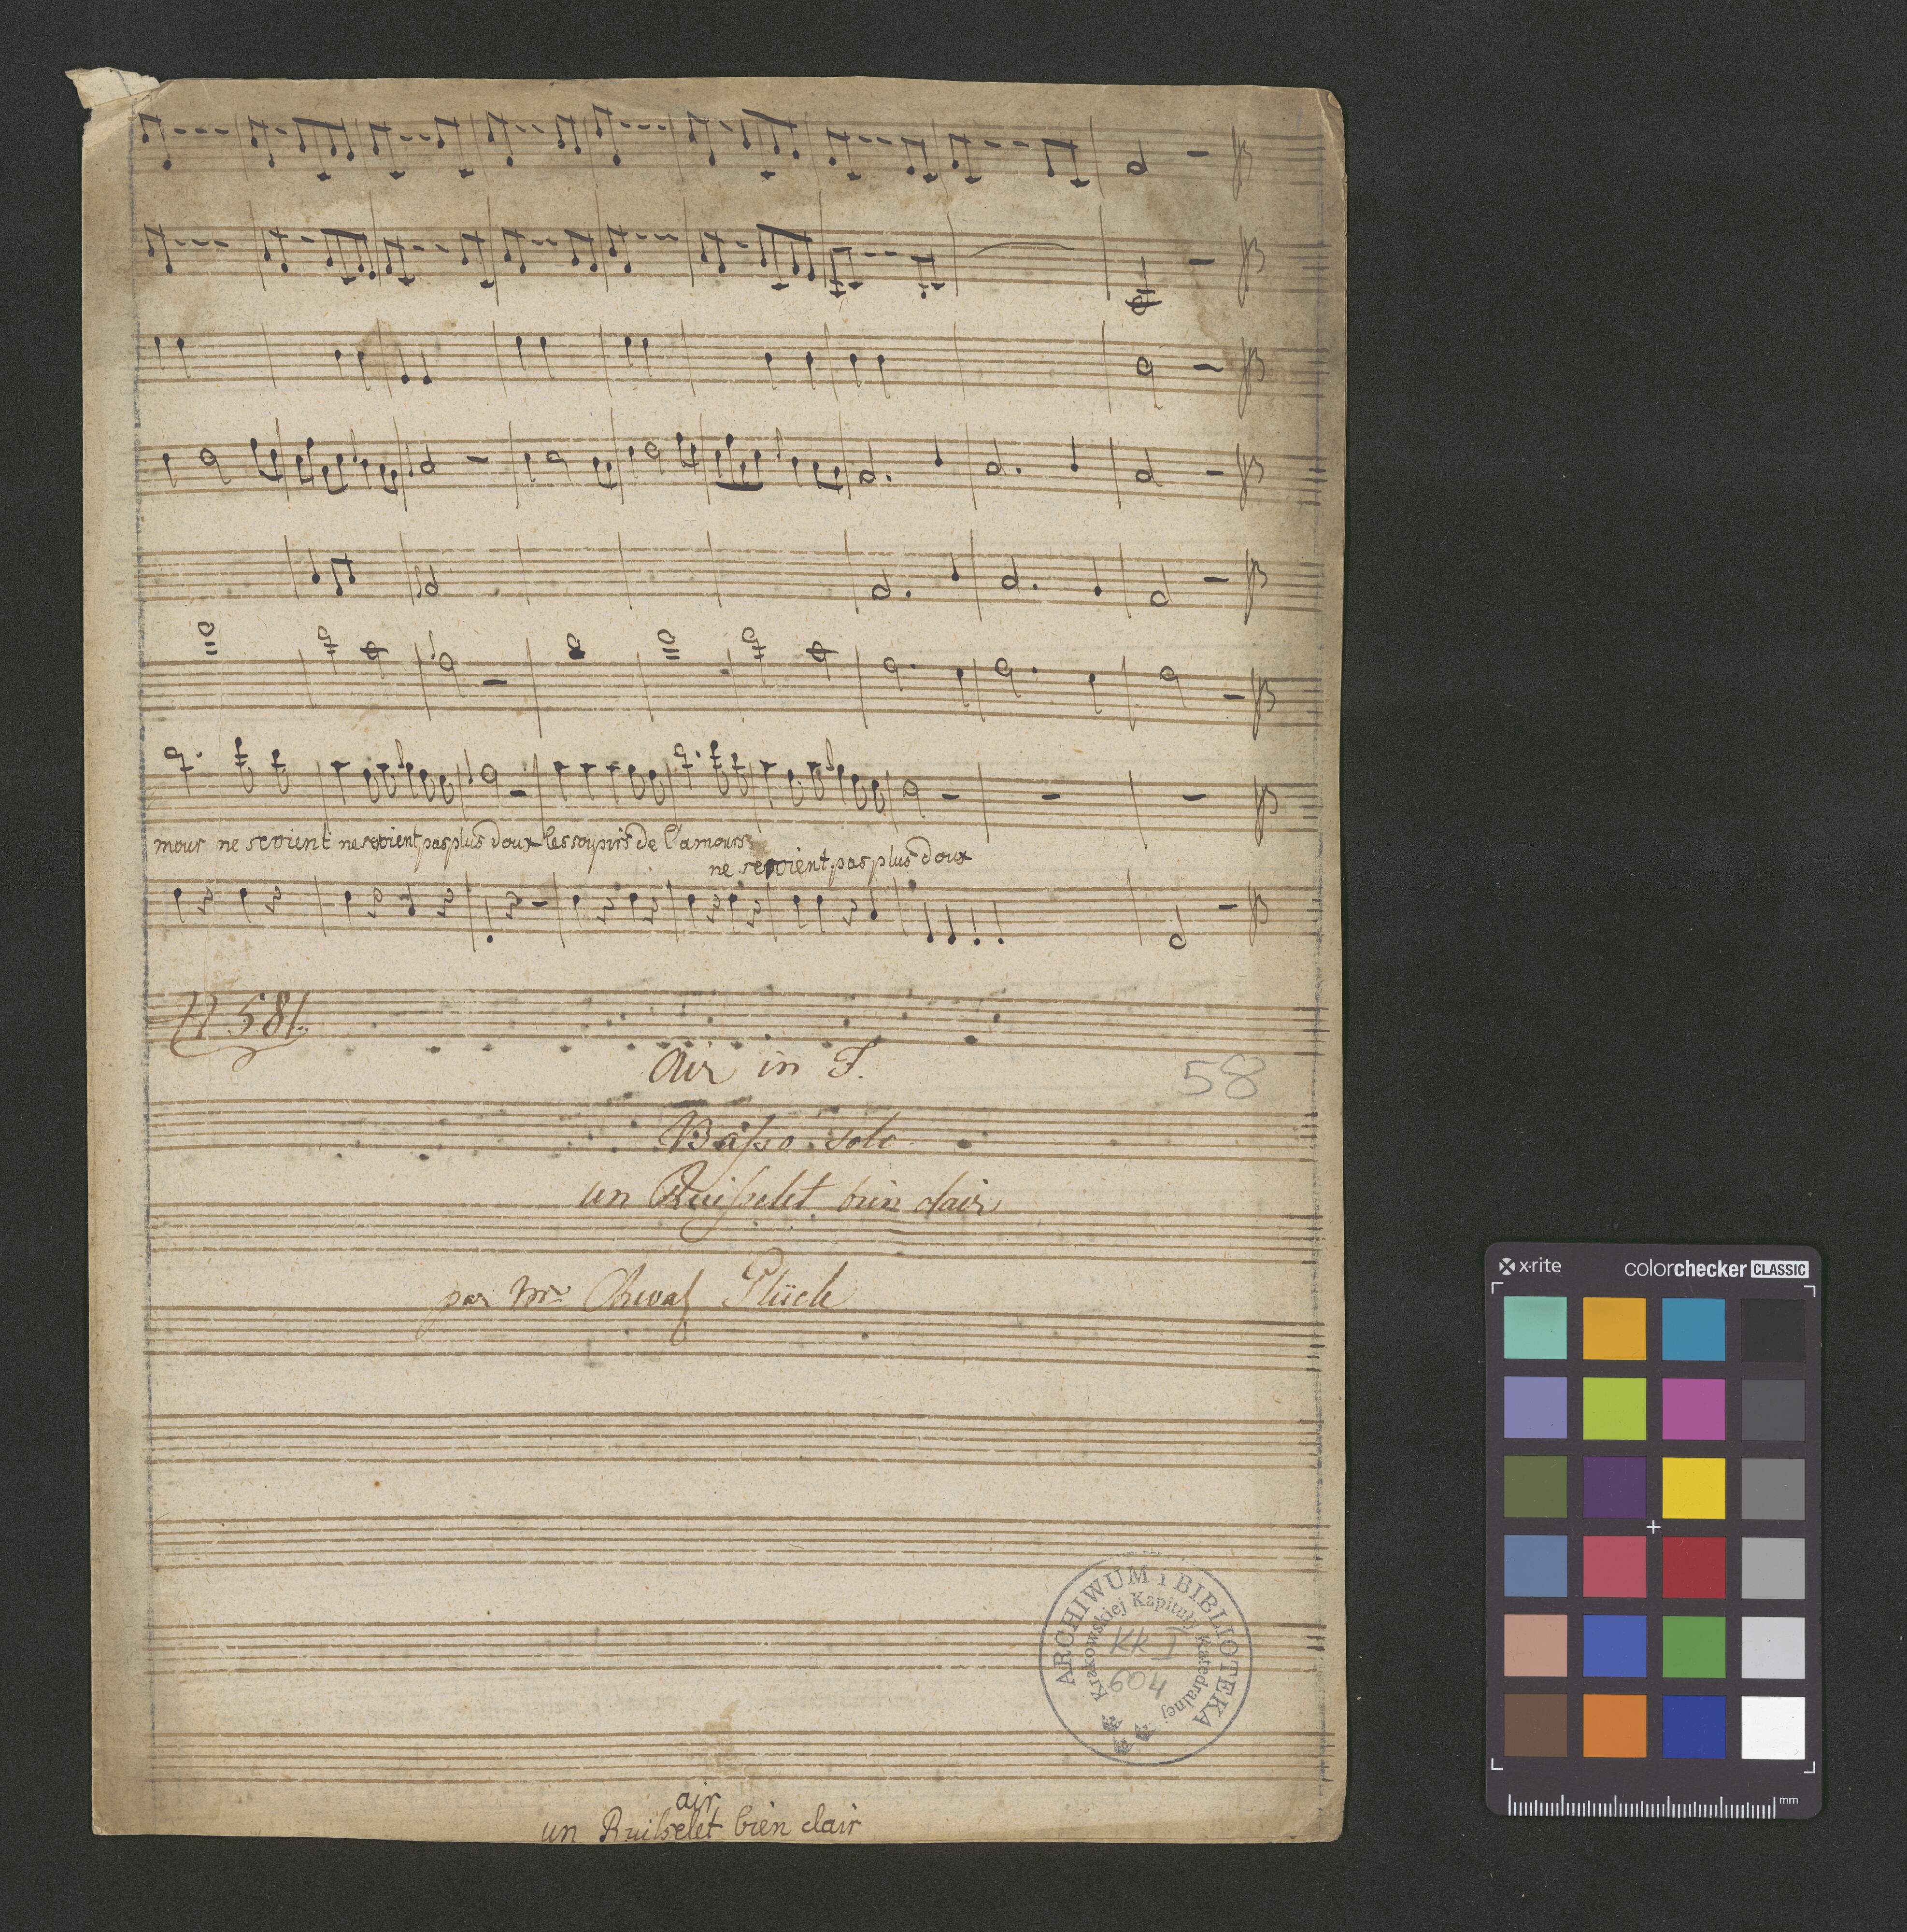 mour ne seroient ne seroient pas plus doux les soupirs de l'amour
ne seroient pas plus doux
N 581.
Air in F.
58
Basso solo
un Ruisselet bien clair
par Mr Cheval Glück
ARCHIWUM i BIBLIOTEKA
Krakowskiej Kapituły Katedralnej
KK I
604
air
un Ruisselet bien clair
x·rite colorchecker CLASSIC
mm